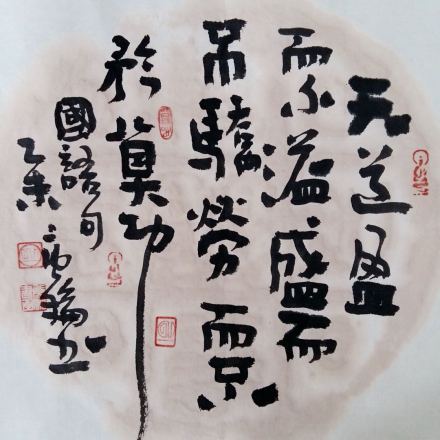 天道盈
而不溢盛而
不驕勞而不
矜其功
國語句
乙未 书